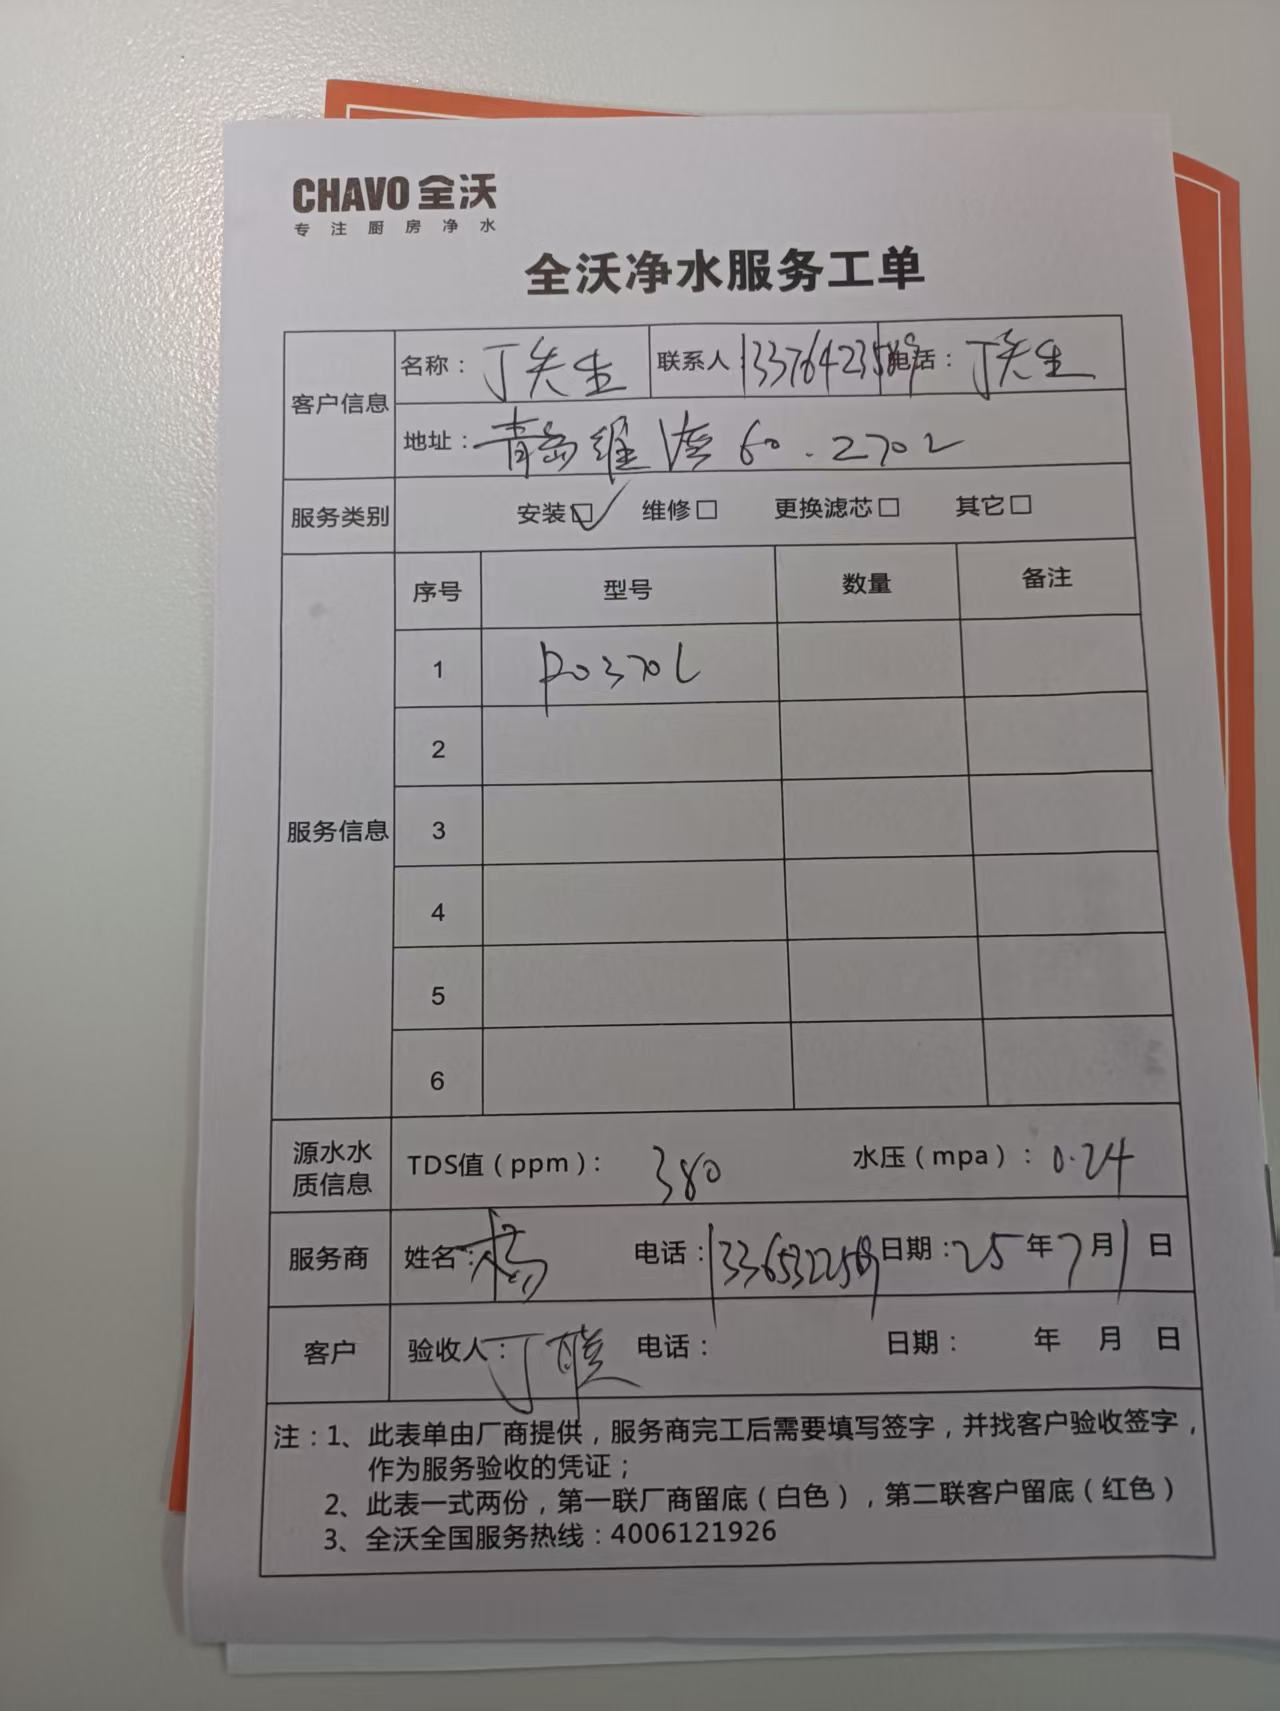 CHAVO 全沃
专注厨房净水
全沃净水服务工单
客户信息
名称：丁先生 联系人：13376423589 电话：丁先生
地址：青岛维 60.2702
服务类别 安装☑ 维修□ 更换滤芯□ 其它□
服务信息
序号 型号 数量 备注
1 RO370L
2
3
4
5
6
源水水质信息 TDS值（ppm）：380 水压（mpa）：0.24
服务商 姓名： 电话：13365322569 日期：25年7月1日
客户 验收人：丁 电话： 日期： 年 月 日
注：1、此表单由厂商提供，服务商完工后需要填写签字，并找客户验收签字，
作为服务验收的凭证；
2、此表一式两份，第一联厂商留底（白色），第二联客户留底（红色）
3、全沃全国服务热线：4006121926